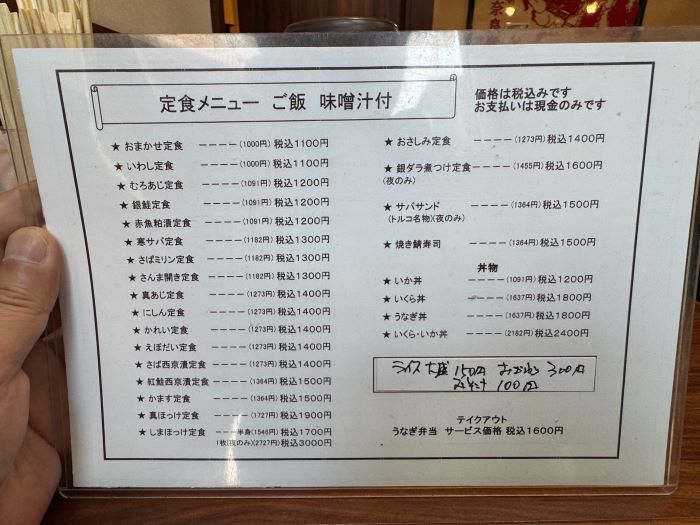 奈良
定食メニュー ご飯 味噌汁付
価格は税込みです
お支払いは現金のみです
★ おまかせ定食 ----(1000円) 税込1100円
★ いわし定食 ----(1000円) 税込1100円
★ むろあじ定食 ----(1091円) 税込1200円
★ 銀鮭定食 ----(1091円) 税込1200円
★ 赤魚粕漬定食 ----(1091円) 税込1200円
★ 寒サバ定食 ----(1182円) 税込1300円
★ さばミリン定食 ----(1182円) 税込1300円
★ さんま開き定食 ----(1182円) 税込1300円
★ 真あじ定食 ----(1273円) 税込1400円
★ にしん定食 ----(1273円) 税込1400円
★ かれい定食 ----(1273円) 税込1400円
★ えぼだい定食 ----(1273円) 税込1400円
★ さば西京漬定食 ----(1273円) 税込1400円
★ 紅鮭西京漬定食 ----(1364円) 税込1500円
★ かます定食 ----(1364円) 税込1500円
★ 真ほっけ定食 ----(1727円) 税込1900円
★ しまほっけ定食 ---半身(1546円) 税込1700円
1枚(夜のみ)(2727円) 税込3000円
★ おさしみ定食 ----(1273円) 税込1400円
★ 銀ダラ煮つけ定食----(1455円) 税込1600円
(夜のみ)
★ サバサンド ----(1364円) 税込1500円
(トルコ名物)(夜のみ)
★ 焼き鯖寿司 ----(1364円) 税込1500円
丼物
★ いか丼 ----(1091円) 税込1200円
★ いくら丼 ----(1637円) 税込1800円
★ うなぎ丼 ----(1637円) 税込1800円
★ いくら・いか丼 ----(2182円) 税込2400円
ライス大盛 150円 300円
100円
テイクアウト
うなぎ弁当 サービス価格 税込1600円